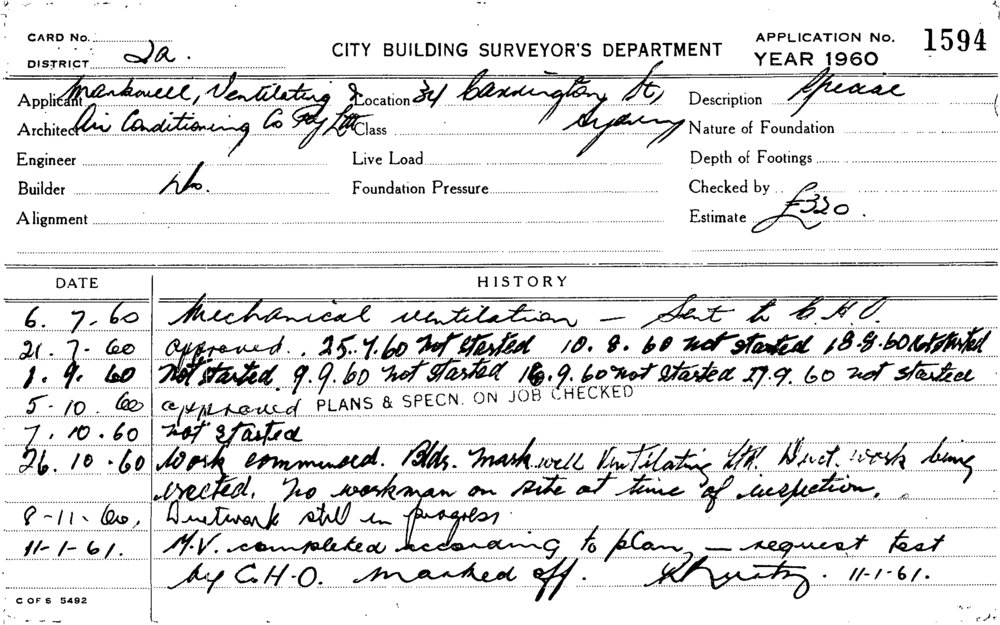 CARD No.
DISTRICT 2a.
CITY BUILDING SURVEYOR'S DEPARTMENT
APPLICATION No. 1594
YEAR 1960
Applicant Markwell, Ventilating &
Architect Air Conditioning Co Pty Ltd
Engineer
Builder Do.
Alignment
Location 34 Carrington St,
Class Sydney
Live Load
Foundation Pressure
Description Special
Nature of Foundation
Depth of Footings
Checked by
Estimate £320.
DATE HISTORY
6.7.60 Mechanical ventilation — Sent to C.H.O.
21.7.60 approved. 25.7.60 Not started 10.8.60 not started 18-8.60 Not started
1.9.60 Not started. 9.9.60 not started 16.9.60 not started 27.9.60 not started
5-10.60 approved PLANS & SPECN. ON JOB CHECKED
7.10.60 not started
26.10.60 Work commenced. Bldr. Markwell Ventilating Ltd. Duct work being
erected. No workman on site at time of inspection.
8-11-60. Ductwork still in progress
11-1-61. M.V. completed according to plan, — request test
by C.H.O. marked off. 11-1-61.
C OF S 5492